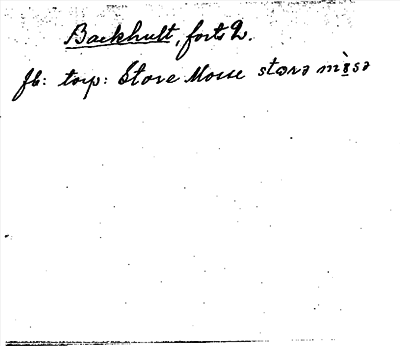 Backhult, forts 2.
fb: torp: Store Mosse storə mòsə